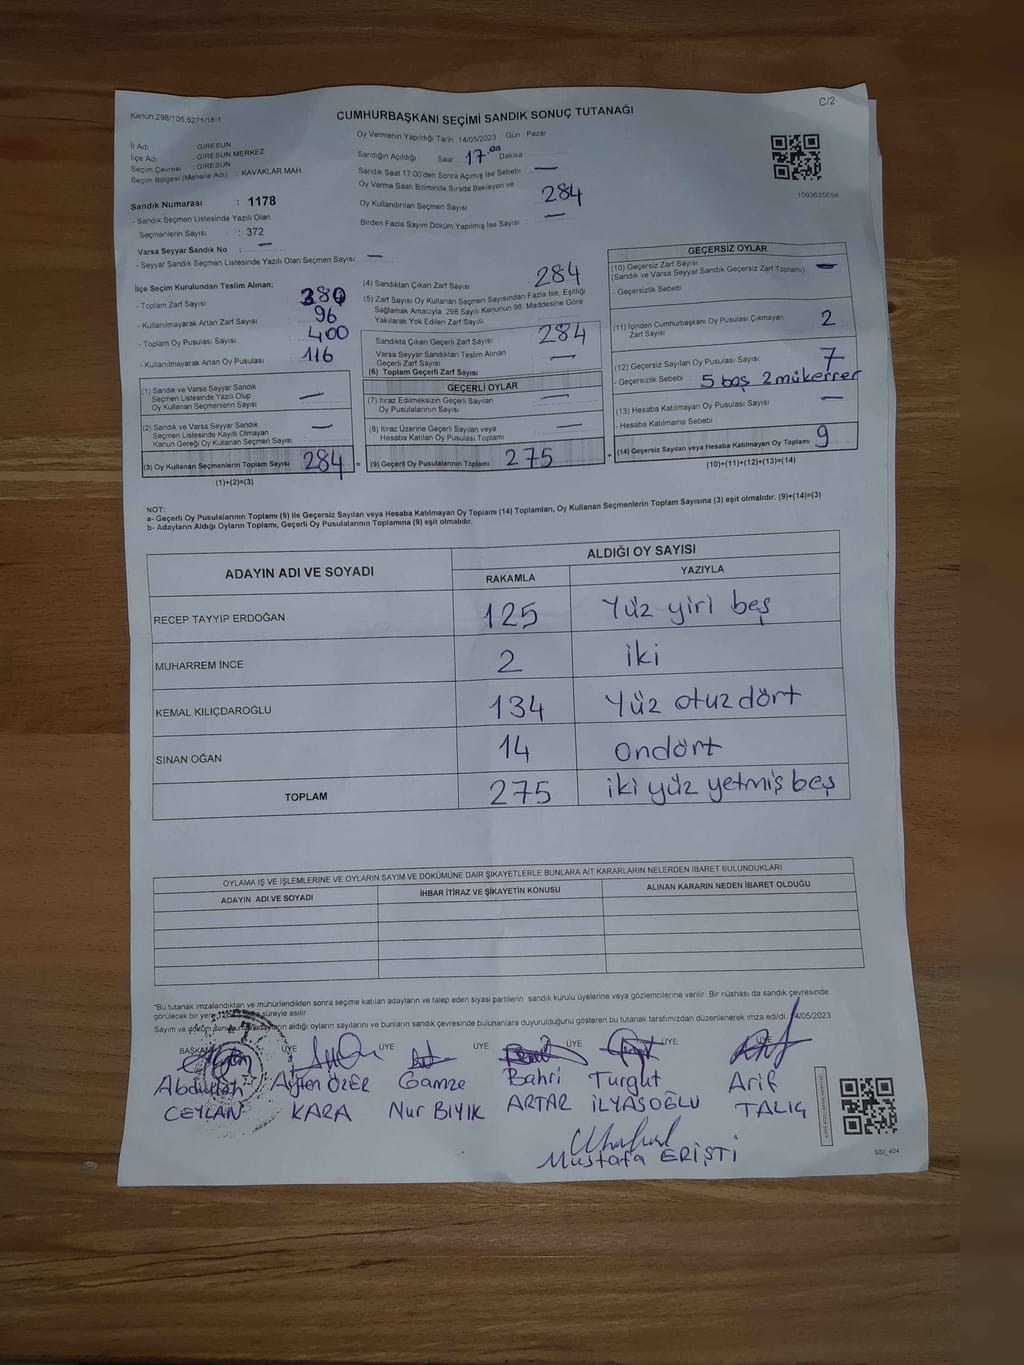 Kanun:298/105,6271/18-1
C/2
CUMHURBAŞKANI SEÇİMİ SANDIK SONUÇ TUTANAĞI
İl Adı : GİRESUN
İlçe Adı : GİRESUN MERKEZ
Seçim Çevresi : GİRESUN
Seçim Bölgesi (Mahalle Adı) : KAVAKLAR MAH.
Sandık Numarası : 1178
- Sandık Seçmen Listesinde Yazılı Olan
Seçmenlerin Sayısı : 372
Varsa Seyyar Sandık No : —
- Seyyar Sandık Seçmen Listesinde Yazılı Olan Seçmen Sayısı: —
Oy Vermenin Yapıldığı Tarih : 14/05/2023 Gün : Pazar
Sandığın Açıldığı Saat 17.00 Dakika
Sandık Saat 17.00'den Sonra Açımış İse Sebebi : —
Oy Verme Saati Bitiminde Sırada Bekleyen ve
Oy Kullandırılan Seçmen Sayısı 284
Birden Fazla Sayım Döküm Yapılmış İse Sayısı : —
1093635694
İlçe Seçim Kurulundan Teslim Alınan;
- Toplam Zarf Sayısı 380
- Kullanılmayarak Artan Zarf Sayısı 96
- Toplam Oy Pusulası Sayısı 400
- Kullanılmayarak Artan Oy Pusulası 116
(1) Sandık ve Varsa Seyyar Sandık
Seçmen Listesinde Yazılı Olup
Oy Kullanan Seçmenlerin Sayısı —
(2) Sandık ve Varsa Seyyar Sandık
Seçmen Listesinde Kayıtlı Olmayan
Kanun Gereği Oy Kullanan Seçmen Sayısı —
(3) Oy Kullanan Seçmenlerin Toplam Sayısı 284 =
(1)+(2)=(3)
(4) Sandıktan Çıkan Zarf Sayısı 284
(5) Zarf Sayısı Oy Kullanan Seçmen Sayısından Fazla İse, Eşitliği
Sağlamak Amacıyla; 298 Sayılı Kanunun 98. Maddesine Göre
Yakılarak Yok Edilen Zarf Sayısı
Sandıkta Çıkan Geçerli Zarf Sayısı 284
Varsa Seyyar Sandıktan Teslim Alınan
Geçerli Zarf Sayısı —
(6) Toplam Geçerli Zarf Sayısı
GEÇERLİ OYLAR
(7) İtiraz Edilmeksizin Geçerli Sayılan
Oy Pusulalarının Sayısı —
(8) İtiraz Üzerine Geçerli Sayılan veya
Hesaba Katılan Oy Pusulası Toplamı —
(9) Geçerli Oy Pusulalarının Toplamı 275 +
GEÇERSİZ OYLAR
(10) Geçersiz Zarf Sayısı
(Sandık ve Varsa Seyyar Sandık Geçersiz Zarf Toplamı) —
- Geçersizlik Sebebi
(11) İçinden Cumhurbaşkanı Oy Pusulası Çıkmayan
Zarf Sayısı 2
(12) Geçersiz Sayılan Oy Pusulası Sayısı 7
- Geçersizlik Sebebi 5 boş 2 mükerrer
(13) Hesaba Katılmayan Oy Pusulası Sayısı —
- Hesaba Katılmama Sebebi :
(14) Geçersiz Sayılan veya Hesaba Katılmayan Oy Toplamı 9
(10)+(11)+(12)+(13)=(14)
NOT:
a- Geçerli Oy Pusulalarının Toplamı (9) ile Geçersiz Sayılan veya Hesaba Katılmayan Oy Toplamı (14) Toplamları, Oy Kullanan Seçmenlerin Toplam Sayısına (3) eşit olmalıdır. (9)+(14)=(3)
b- Adayların Aldığı Oyların Toplamı, Geçerli Oy Pusulalarının Toplamına (9) eşit olmalıdır.
ADAYIN ADI VE SOYADI
ALDIĞI OY SAYISI
RAKAMLA YAZIYLA
RECEP TAYYİP ERDOĞAN 125 Yüz yiri beş
MUHARREM İNCE 2 iki
KEMAL KILIÇDAROĞLU 134 Yüz otuz dört
SİNAN OĞAN 14 ondört
TOPLAM 275 iki yüz yetmiş beş
OYLAMA İŞ VE İŞLEMLERİNE VE OYLARIN SAYIM VE DÖKÜMÜNE DAİR ŞİKAYETLERLE BUNLARA AİT KARARLARIN NELERDEN İBARET BULUNDUKLARI
ADAYIN ADI VE SOYADI İHBAR İTİRAZ VE ŞİKAYETİN KONUSU ALINAN KARARIN NEDEN İBARET OLDUĞU
*Bu tutanak imzalandıktan ve mühürlendikten sonra seçime katılan adayların ve talep eden siyasi partilerin sandık kurulu üyelerine veya gözlemcilerine verilir. Bir nüshası da sandık çevresinde
görülecek bir yere süreyle asılır.
Sayım ve döküm adayların aldığı oyların sayılarını ve bunların sandık çevresinde bulunanlara duyurulduğunu gösteren bu tutanak tarafımızdan düzenlenerek imza edildi. 14/05/2023
BAŞKAN ÜYE ÜYE ÜYE ÜYE ÜYE
Abdullah Ayten ÖZER Gamze Bahri Turgut Arif
CEYLAN KARA Nur BIYIK ARTAR İLYASOĞLU TALIG
Mustafa ERİŞTİ
SSI_404